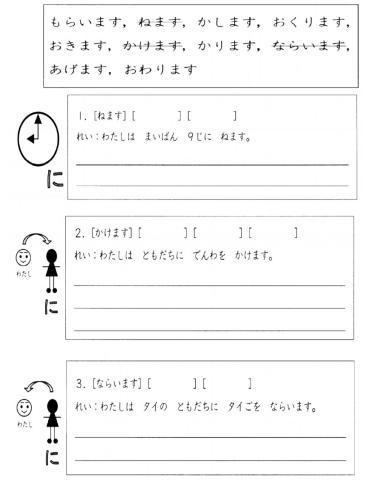 もらいます, ねます, かします, おくります,
おきます, かけます, かります, ならいます,
あげます, おわります
1. [ねます] [ ] [ ]
れい：わたしは まいばん 9じに ねます。
に
2. [かけます] [ ] [ ] [ ]
れい：わたしは ともだちに でんわを かけます。
わたし
に
3. [ならいます] [ ] [ ]
れい：わたしは タイの ともだちに タイごを ならいます。
わたし
に